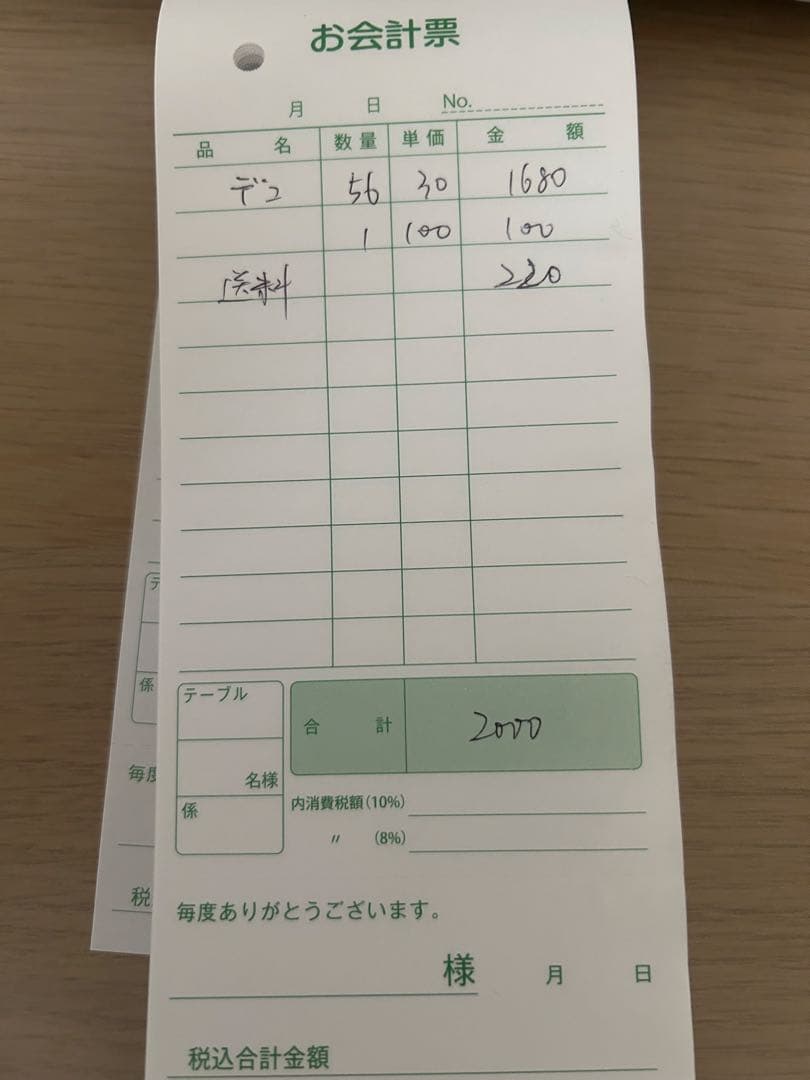 お会計票
月 日 No.
品 名 数量 単価 金 額
デコ 56 30 1680
1 100 100
送料 220
テーブル
合 計 2000
名様
係
内消費税額(10%)
〃 (8%)
毎度ありがとうございます。
様 月 日
税込合計金額
テ
係
毎度
税